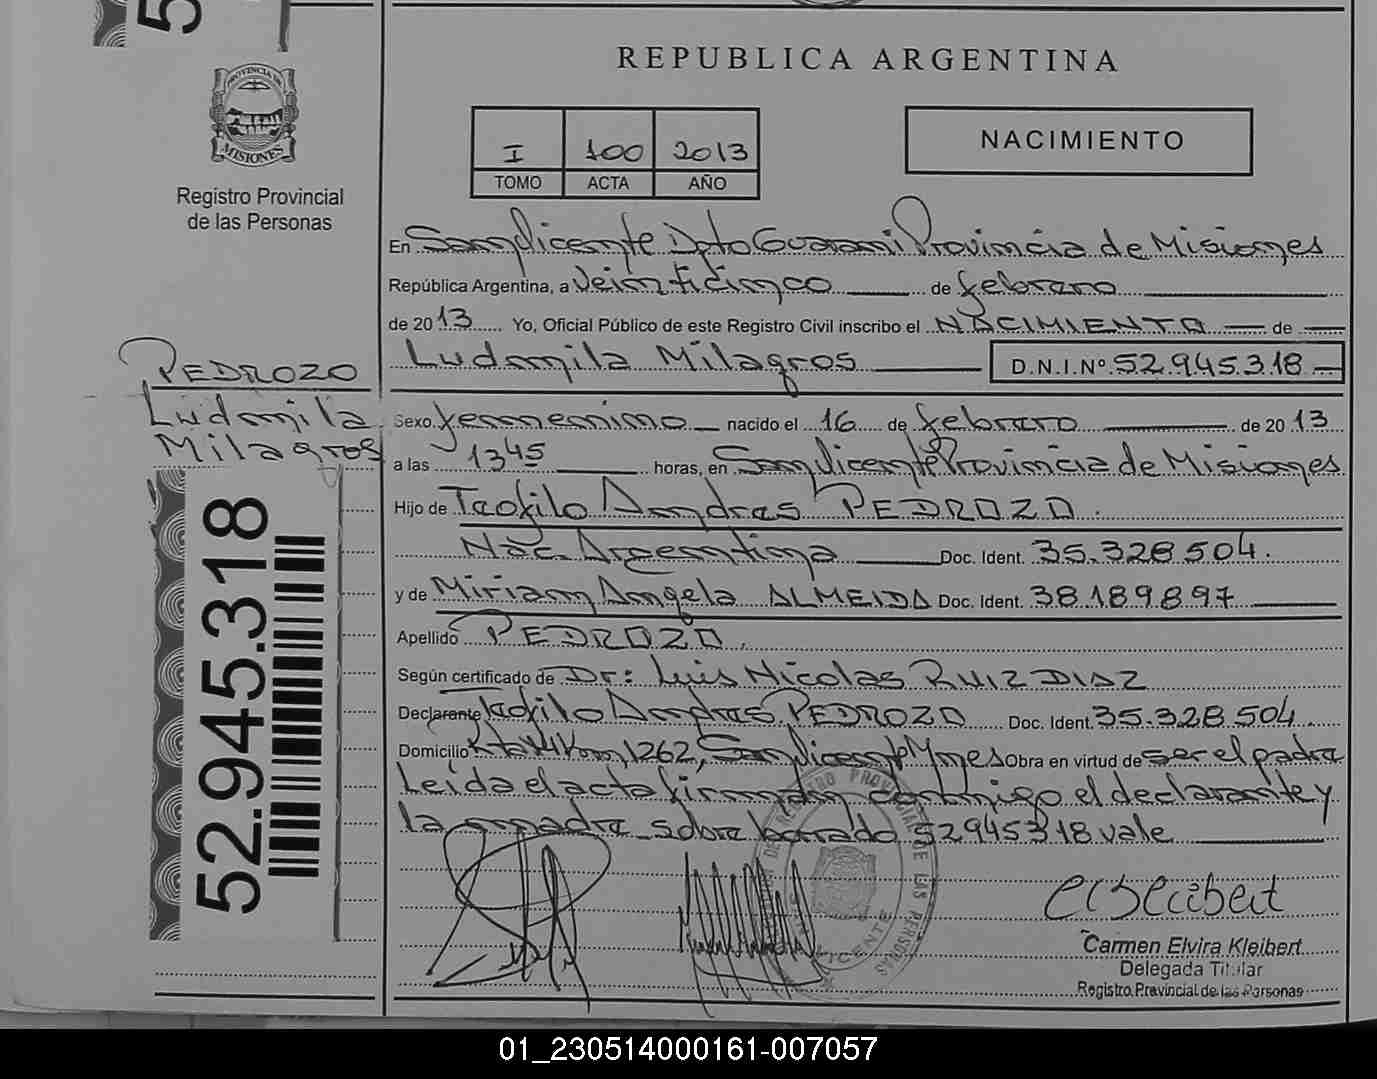 REPUBLICA ARGENTINA
PROVINCIA DE
MISIONES
Registro Provincial
de las Personas
I 100 2013
TOMO ACTA AÑO
NACIMIENTO
En San Vicente Dpto Guarani Provincia de Misiones
República Argentina, a Veinticinco de febrero
de 2013 Yo, Oficial Público de este Registro Civil inscribo el NACIMIENTO de
Ludmila Milagros D.N.I.Nº 52.945.318
PEDROZO
Ludmila
Milagros
52.945.318
Sexo femenino nacido el 16 de febrero de 2013
a las 13 45 horas, en San Vicente Provincia de Misiones
Hijo de Teofilo Andres PEDROZO.
Nac. Argentina Doc. Ident. 35.328.504.
y de Miriam Angela ALMEIDA Doc. Ident. 38.189.897
Apellido PEDROZO.
Según certificado de Dr: Luis Nicolas RUIZ DIAZ
Declarante Teofilo Andres PEDROZO Doc. Ident. 35.328.504
Domicilio Km 1262, San Vicente Mnes Obra en virtud de ser el padre
Leida el acta firman conmigo el declarante y
la madre sobre borrado 52945318 vale
REGISTRO PROVINCIAL DE LAS PERSONAS
Carmen Elvira Kleibert
Delegada Titular
Registro Provincial de las Personas
01_230514000161-007057